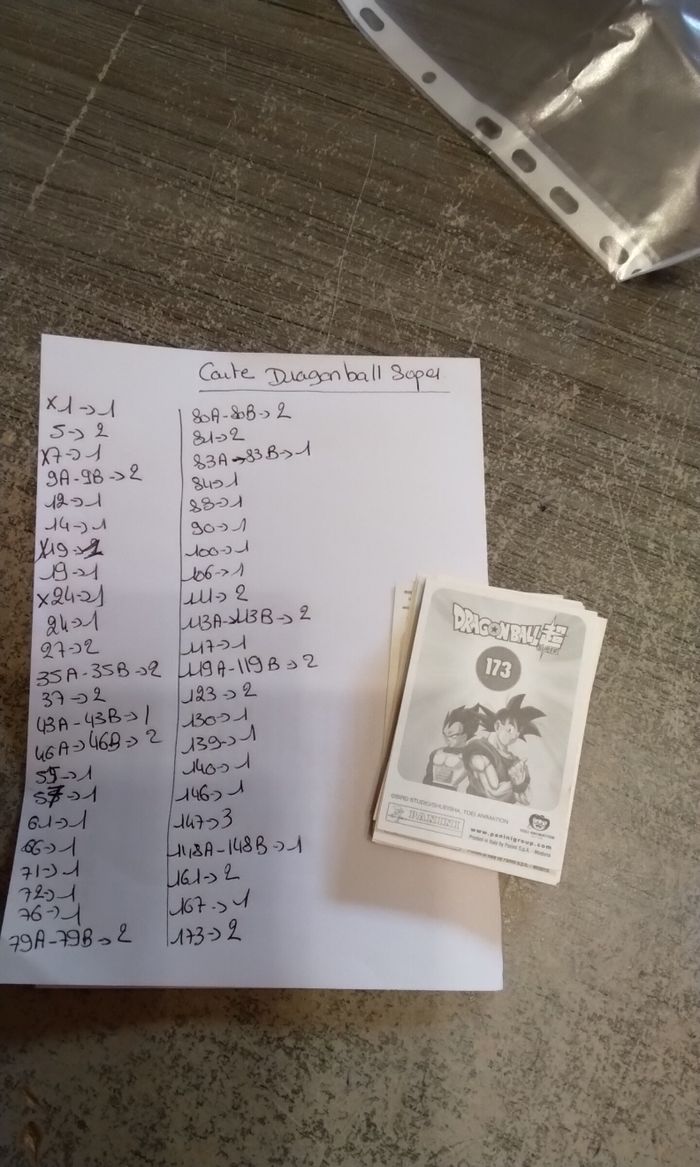 Carte Dragon ball Super
x1→1
5→2
x7→1
9A-9B→2
12→1
14→1
x19→2
19→1
x24→1
24→1
27→2
35A-35B→2
37→2
43A-43B→1
46A→46B→2
55→1
57→1
61→1
66→1
71→1
72→1
76→1
79A-79B→2
80A-80B→2
81→2
83A→83B→1
84→1
88→1
90→1
100→1
106→1
111→2
113A→113B→2
117→1
119A-119B→2
123→2
130→1
139→1
140→1
146→1
147→3
148A-148B→1
161→2
167→1
173→2
DRAGONBALL超
173
©BIRD STUDIO/SHUEISHA, TOEI ANIMATION
PANINI
TOEI ANIMATION
www.paninigroup.com
Printed in Italy by Panini S.p.A. - Modena